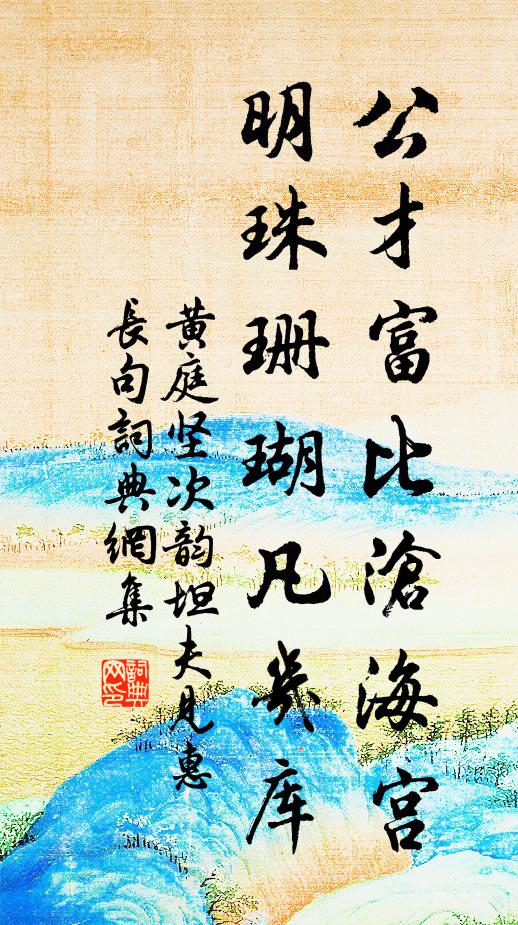 公才富比滄海宫
明珠珊瑚凡幾库
黄庭坚次韵坦夫見惠
長句詞典網集
詞典网印